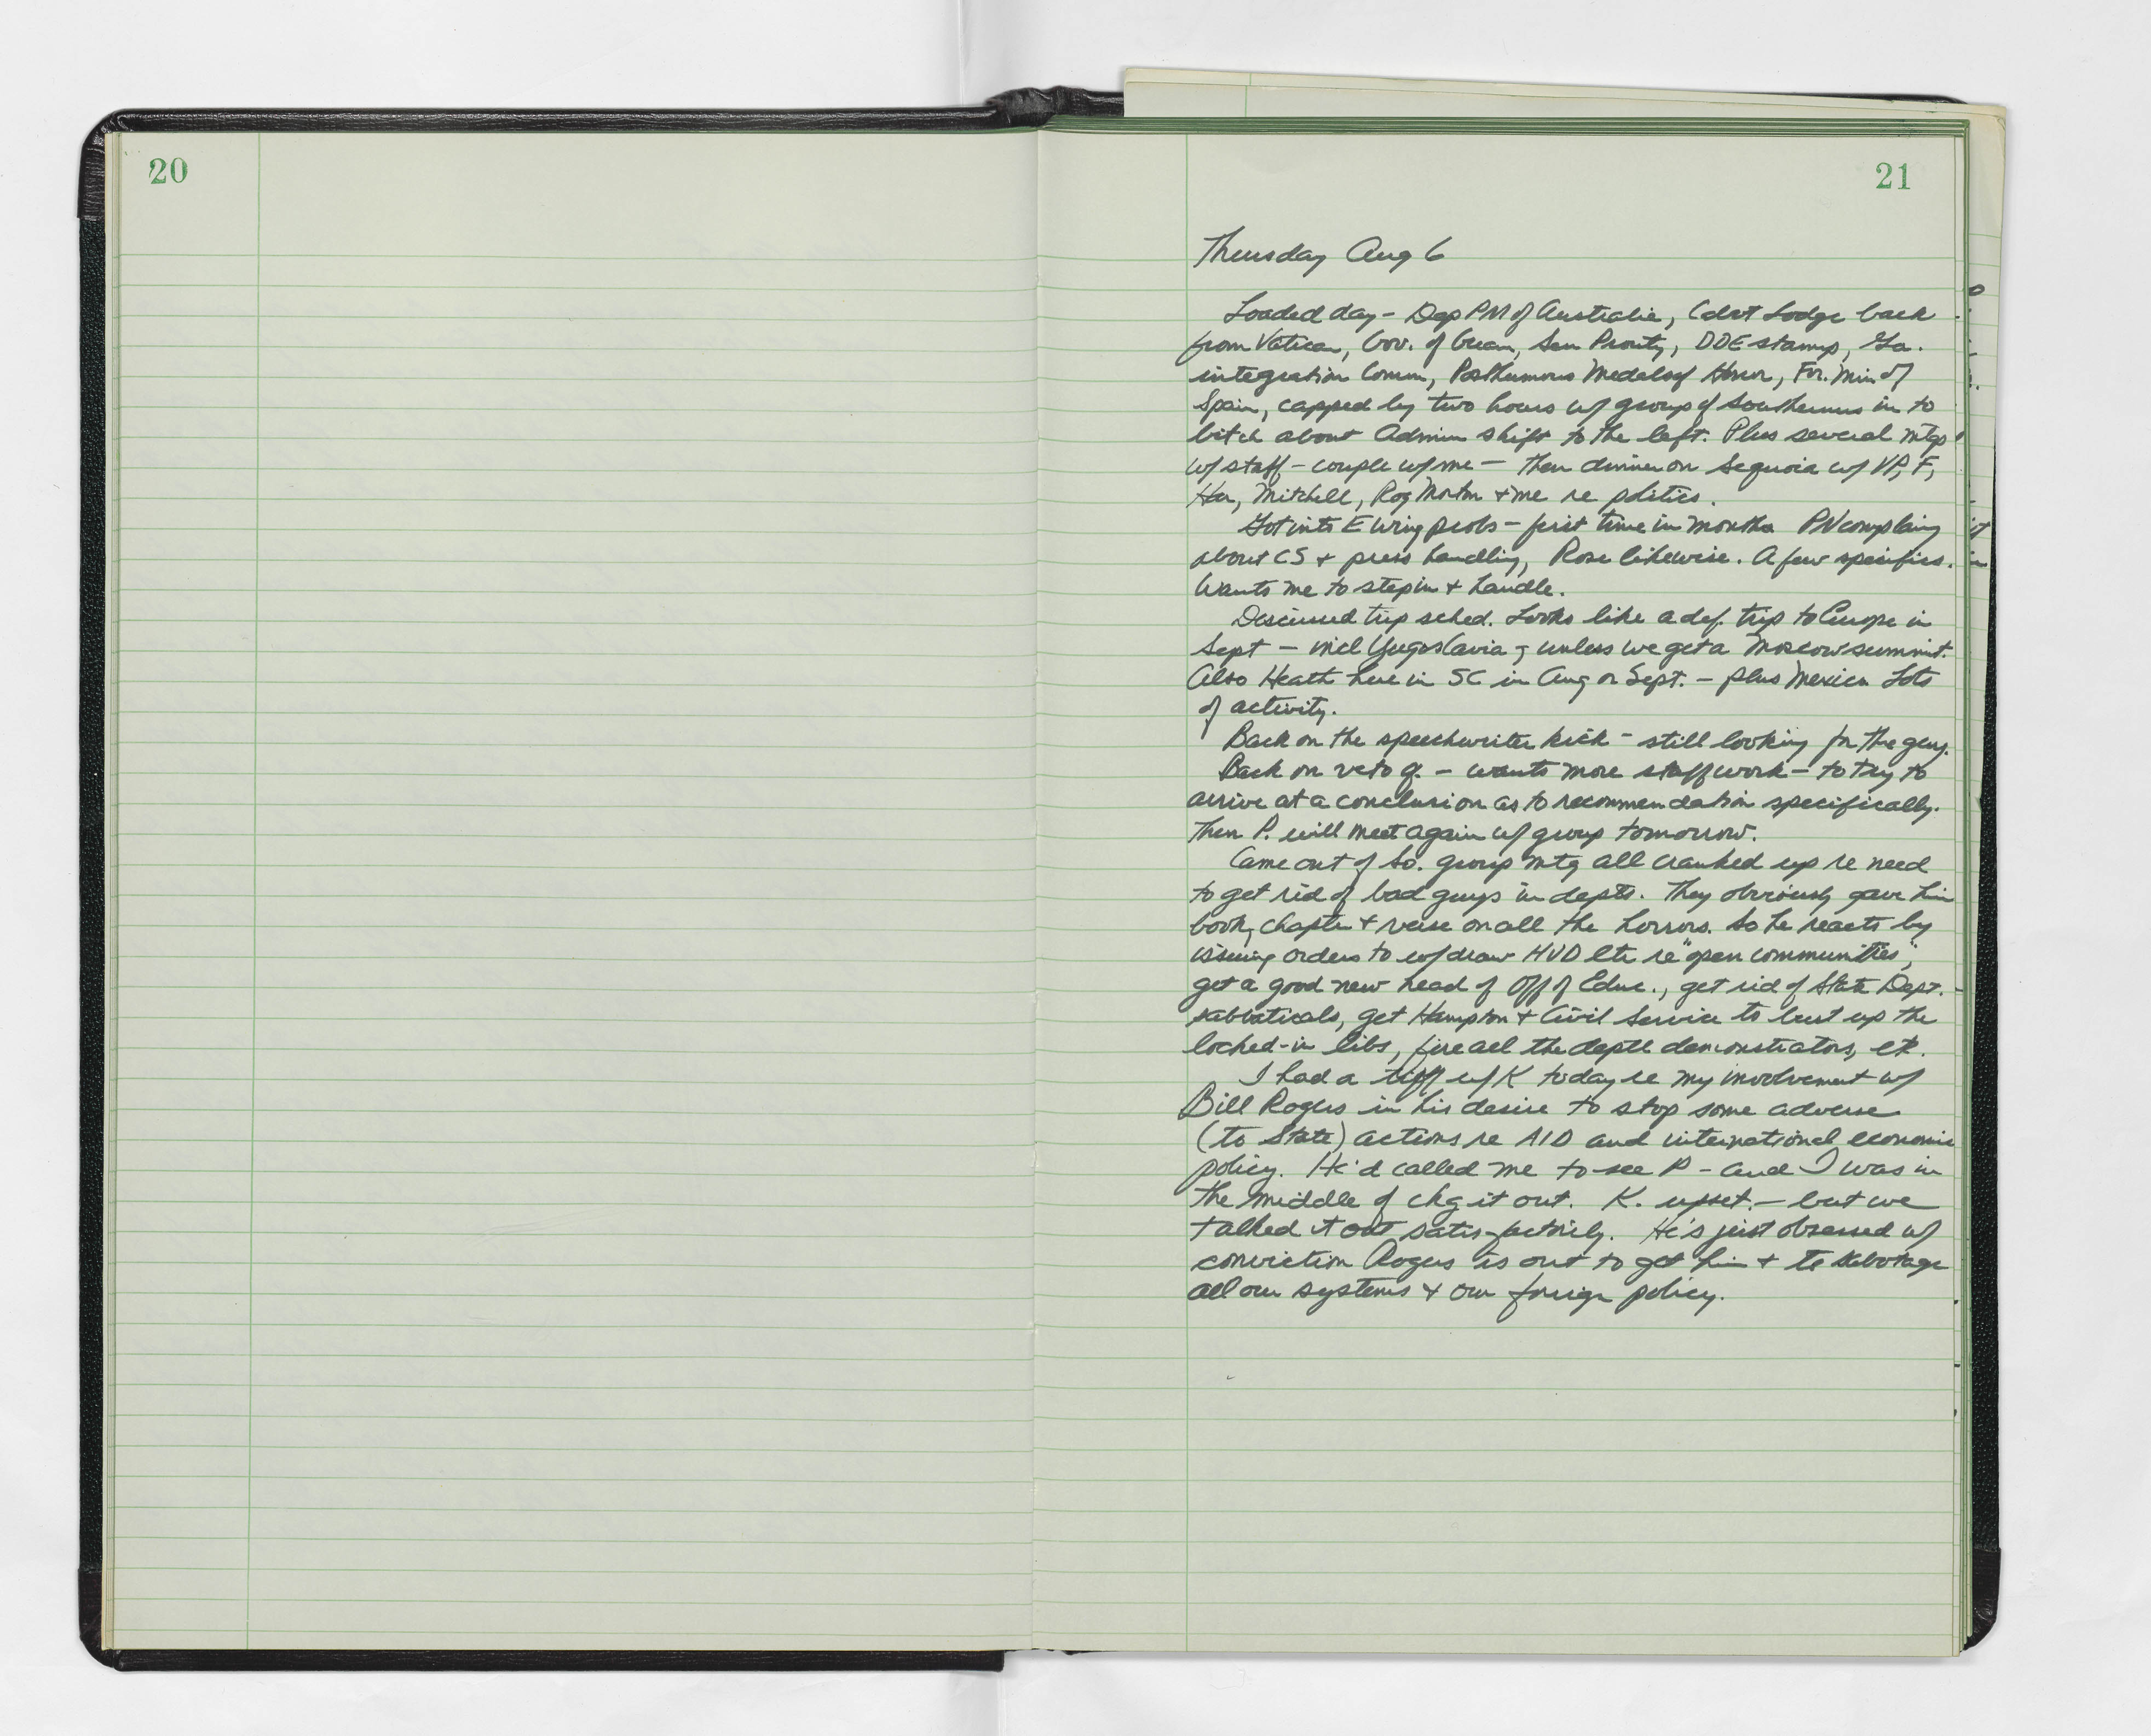 20
21
Thursday Aug 6
Loaded day - Dep PM of Australia, Cabot Lodge back
from Vatican, Gov. of Guam, Sen Prouty, DDE stamp, La.
integration Comm, Posthumous Medals of Honor, For. Min of
Spain, capped by two hours w/ group of Southerners in to
bitch about Admin shift to the left. Plus several mtgs
w/ staff - couple w/ me - then dinner on Sequoia w/ VP, F,
Har, Mitchell, Rog Morton + me re politics.
Got into E Wing probs - first time in months PN complaing
about CS + press handling, Rose likewise. A few specifics.
Wants me to step in + handle.
Discussed trip sched. Looks like a def. trip to Europe in
Sept - incl Yugoslavia - unless we get a Moscow summit.
Also Heath here in SC in Aug or Sept. - plus Mexico Lots
of activity.
Back on the speechwriter kick - still looking for the guy.
Back on veto q. - wants more staff work - to try to
arrive at a conclusion as to recommendation specifically.
Then P. will meet again w/ group tomorrow.
Came out of So. group mtg all cranked up re need
to get rid of bad guys in depts. They obviously gave him
book, chapter + verse on all the horrors. So he reacts by
issuing orders to w/draw HUD ltr re "open communities",
get a good new head of Off of Educ., get rid of State Dept.
sabbaticals, get Hampton + Civil Service to bust up the
locked-in libs, fire all the deptl demonstrators, etc.
I had a tiff w/ K today re my involvement w/
Bill Rogers in his desire to stop some adverse
(to State) actions re AID and international economic
policy. He'd called me to see P - and I was in
the middle of chg it out. K. upset - but we
talked it out satisfactorily. He's just obsessed w/
conviction Rogers is out to get him + to sabotage
all our systems + our foreign policy.